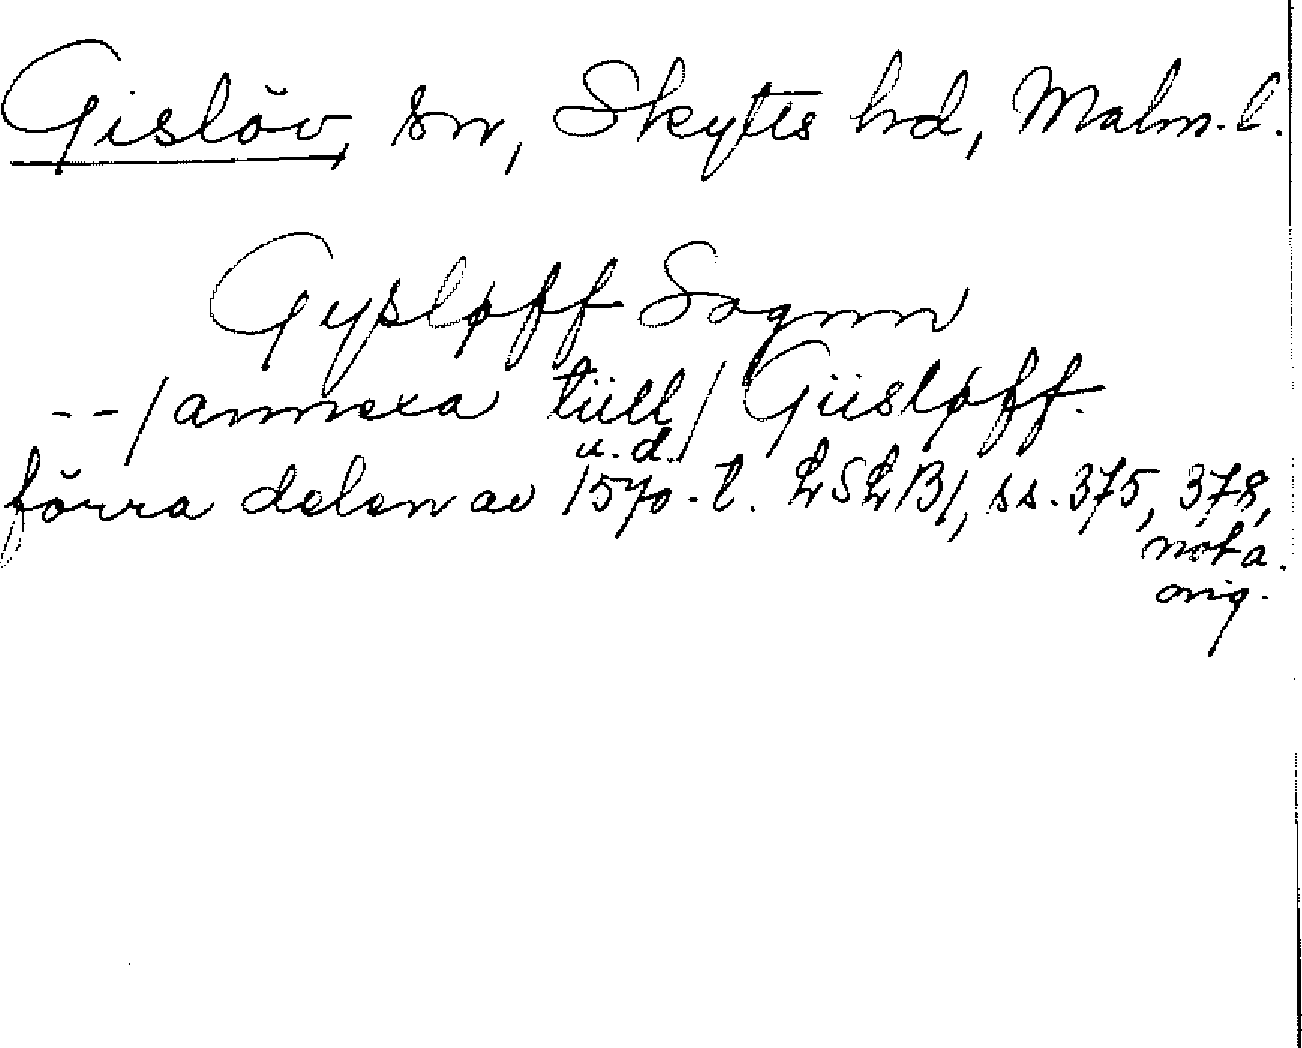 Gislöv, sn, Skytts hd, Malm. l.
Gysløff Sognn
-- / annexa tiill / Giisløff.
u. d.
förra delen av 1570-t. LSLB1, ss. 375, 378,
not a.
orig.